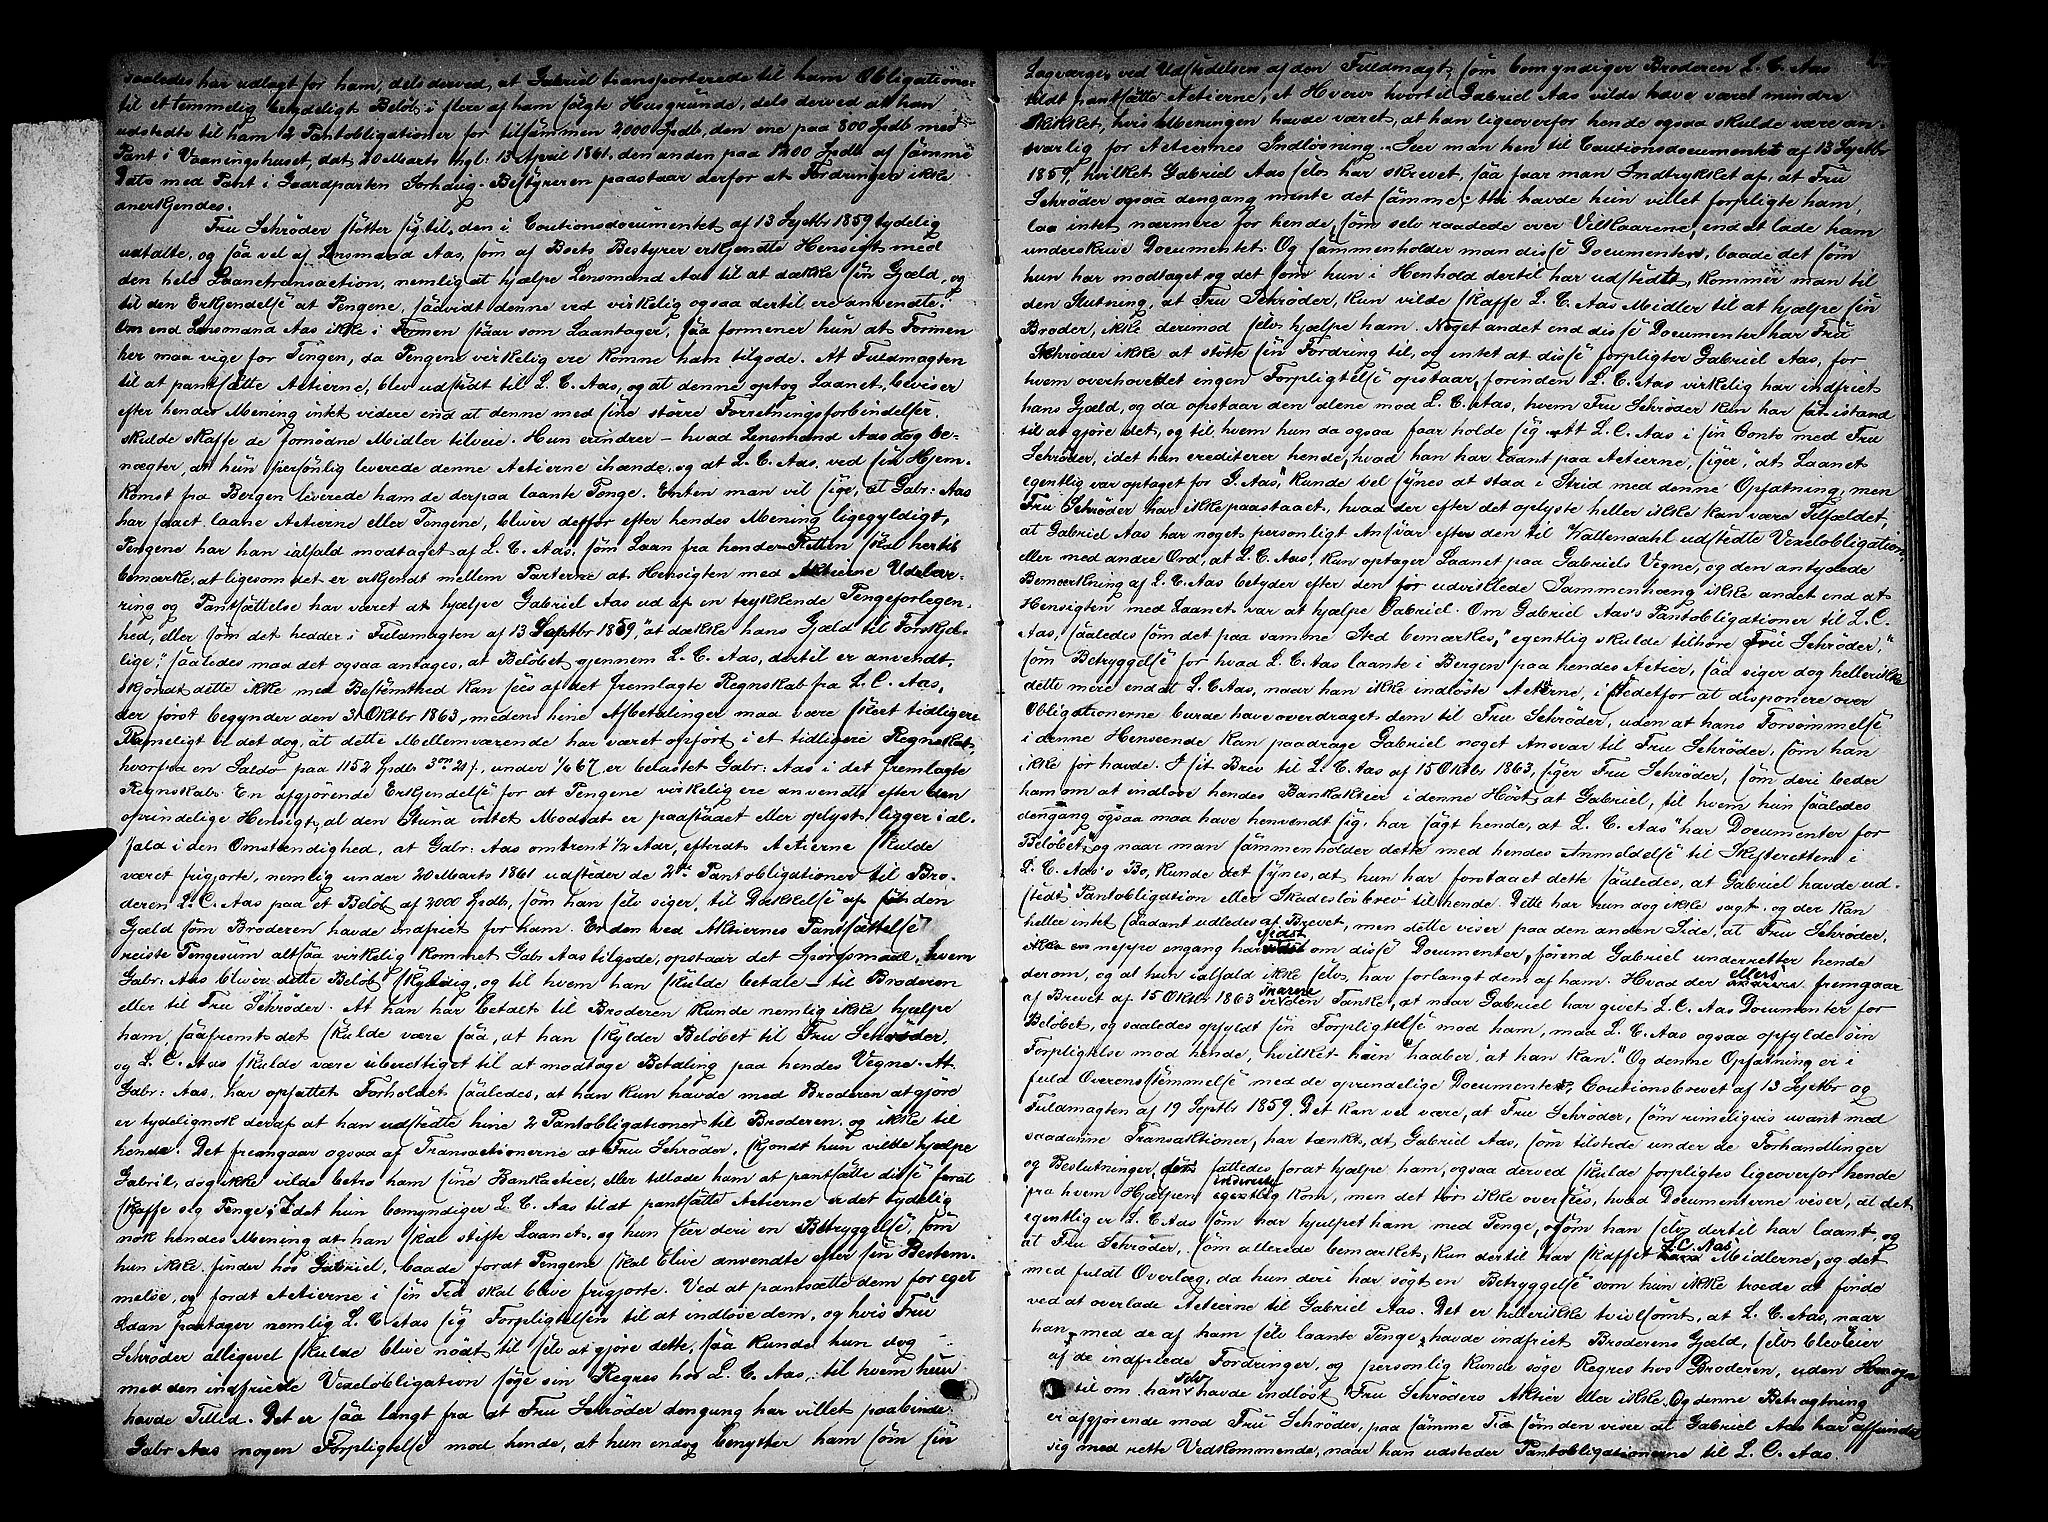 saaledes har udlagt for ham, dels derved, at Gabriel transporterede til ham Obligationer
til et temmelig betydeligt Beløb i flere af ham solgte Husgrunde, dels derved at han
udstedte til ham 2 Pantobligationer for tilsammen 2000 Spdb, den ene paa 800 Spdb med
Pant i Vaaningshuset, dat. 20 Marts thgl: 13 April 1861, den anden paa 1200 Spdb af samme
Dato med Pant i Gaardparten Sorhaug. Bestyreren paastaar derfor at Fordringen ikke
anerkjendes.
Fru Schrøder støtter sig til, den i Cautionsdocumentet af 13 Septbr 1859 tydelig
udtalte, og saa vel af Lensmand Aas, som af Boets Bestyrer erkjendte Hensigt med
den hele Laanetransaction, nemlig at hjælpe Lensmand Aas til at dække sin Gjæld, og
til den Erkjendelse at Pengene, saavidt denne ved virkelig ogsaa dertil ere anvendte.
Om end Lensmand Aas ikke i Formen staar som Laantager, saa formener hun at Formen
her maa vige for Tingen, da Pengene virkelig ere komne ham tilgode. At Fuldmagten
til at pantsætte Actierne, blev udstedt til L. C. Aas, og at denne optog Laanet, beviser
efter hendes Mening intet videre end at denne med sine større Forretningsforbindelser
skulde skaffe de fornødne Midler tilveie. Hun erindrer - hvad Lensmand Aas dog be-
nægter, at hun personlig leverede denne Actierne ihænde, og at L. C. Aas, ved sin Hjem-
komst fra Bergen leverede ham de derpaa laante Penge. Enten man vil sige, at Gabr: Aas
har faaet laane Actierne eller Pengene, bliver derfor efter hendes Mening ligegyldigt,
Pengene har han ialfald modtaget af L. C. Aas, som Laan fra hende - Retten skal hertil
bemærke, at ligesom det er erkjendt mellem Parterne at Hensigten med Aktierne Udlever-
ring og Pantsættelse har været at hjælpe Gabriel Aas ud af en trykkende Pengeforlegen-
hed, eller som det hedder i Fuldmagten af 13 Septbr 1859, "at dække hans Gjæld til Forskjel-
lige," saaledes maa det ogsaa antages, at Beløbet gjennem L. C. Aas, dertil er anvendt,
skjøndt dette ikke med Bestemthed kan sees af det fremlagte Regnskab fra L. C. Aas,
der først begynder den 31 Oktbr 1863, medens hine Afbetalinger maa være skeet tidligere
Rimeligt er det dog, at dette Mellemværende har været opført i et tidligere Regnskab,
hvorfra en Saldo paa 1152 Spdb 3 ort 21 s., under 1/6 67, er belastet Gabr: Aas i det fremlagte
Regnskab. En afgjørende Erkjendelse for at Pengene virkelig ere anvendte efter den
oprindelige Hensigt, al den Stund intet Modsat er paastaaet eller oplyst, ligger i al-
fald i den Omstændighed, at Gabr: Aas omtrent 1/2 Aar, efterat Actierne skulde
været frigjorte, nemlig under 20 Marts 1861 udsteder de 2de Pantobligationer til Bro-
deren L. C. Aas paa et Beløb af 2000 Spdb, som han selv siger, til Dækkelse af den
Gjæld som Broderen havde indfriet for ham. Er den ved Aktiernes Pantsættelse
reiste Pengesum altsaa virkelig kommet Gabr Aas tilgode, opstaar det Spørgsmaal, hvem
Gabr: Aas bliver dette Beløb skyldig, og til hvem han skulde betale - til Broderen
eller til Fru Schrøder. At han har betalt til Broderen kunde nemlig ikke hjælpe
ham, saafremt det skulde være saa, at han skylder Beløbet til Fru Schrøder,
og L. C. Aas skulde være uberettiget til at modtage Betaling paa hendes Vegne. At
Gabr: Aas, har opfattet Forholdet saaledes, at han kun havde med Broderen at gjøre
er tydelignok deraf at han udstedte hine 2 Pantobligationer til Broderen, og ikke til
hende. Det fremgaar ogsaa af Transactionerne at Fru Schrøder, skjøndt hun vilde hjælpe
Gabriel, dog ikke vilde betro ham sine Bankactier, eller tillade ham at pantsætte disse forat
skaffe sig Penge; Idet hun bemyndiger L. C. Aas til at pantsætte Actierne er det tydelig
nok hendes Mening at han skal stifte Laanet, og hun ser deri en Betryggelse, som
hun ikke finder hos Gabriel, baade fordt Pengene skal blive anvendte efter sin Bestem-
melse, og fordt Actierne i sin Tid skal blive frigjorte. Ved at pantsætte dem for eget
Laan paatager nemlig L. C. Aas sig Forpligtelsen til at indløse dem, og hvis Fru
Schrøder alligevel skulde blive nødt til selv at gjøre dette, saa kunde hun dog
med den indfriede Vexelobligation søge sin Regres hos L. C. Aas, til hvem hun
havde Tillid. Det er saa langt fra at Fru Schrøder dengang har villet paabinde
Gabr Aas nogen Forpligtelse mod hende, at hun endog benytter ham som sin
Lagværge, ved Udstedelsen af den Fuldmagt, som bemyndiger Broderen L. C. Aas
tildt pantsætte Actierne, et Hverv hvortil Gabriel Aas vilde have været mindre
skikket, hvis Meningen havde været, at han ligeoverfor hende ogsaa skulde være an-
svarlig for Actiernes Indløsning. Seer man hen til Cautionsdocumentet af 13 Septbr
1859, hvilket Gabriel Aas selv har skrevet, saa faar man Indtrykket af, at Fru
Schrøder ogsaa dengang mente det samme; thi havde hun villet forpligte ham,
laa intet nærmere for hende, som selv raadede over Vilkaarene, end at lade ham
underskrive Documentet. Og sammenholder man disse Documenter, baade det som
hun har modtaget og det som hun i Henhold dertil har udstedt, kommer man til
den Slutning, at Fru Schrøder, kun vilde skaffe L. C. Aas Midler til at hjælpe sin
Broder, ikke derimod selv hjælpe ham. Noget andet end disse Documenter har Fru
Schrøder ikke at støtte sin Fordring til, og intet at disse forpligter Gabriel Aas, for
hvem overhovedet ingen Forpligtelse opstaar, forinden L. C. Aas virkelig har indfriet
hans Gjæld, og da opstaar den alene mod L. C. Aas, hvem Fru Schrøder kun har sat istand
til at gjøre det, og til hvem hun da ogsaa faar holde sig. At L. C. Aas i sin Conto med Fru
Schrøder, idet han crediterer hende, hvad han har laant paa Actierne, siger, "at Laanet
egentlig var optaget for G. Aas," kunde vel synes at staa i Strid med denne Opfatning, men
Fru Schrøder har ikke paastaaet, hvad der efter det oplyste heller ikke kan være Tilfældet,
at Gabriel Aas har noget personligt Ansvar efter den til Wallendahl udstedte Vexelobligation,
eller med andre Ord, at L. C. Aas, kun optager Laanet paa Gabriels Vegne, og den antydede
Bemærkning af L. C. Aas betyder efter den før udviklede Sammenhæng ikke andet end at
Hensigten med Laanet var at hjælpe Gabriel. Om Gabriel Aas's Pantobligationer til L. C.
Aas, saaledes som det paa samme Sted bemærkes, "egentlig skulde tilhøre Fru Schrøder,"
som Betryggelse for hvad L. C. Aas laante i Bergen paa hendes Actier, saa siger dog heller ikke
dette mere end at L. C. Aas, naar han ikke indløste Actierne, i stedetfor at disponere over
Obligationerne burde have overdraget dem til Fru Schrøder, uden at hans Forsømmelse
i denne Henseende kan paadrage Gabriel noget Ansvar til Fru Schrøder, som han
ikke før havde. I sit Brev til L. C. Aas af 15 Oktbr 1863, siger Fru Schrøder, som deri beder
ham om at indløse hendes Bankaktier i denne Høst, at Gabriel, til hvem hun saaledes
dengang ogsaa maa have henvendt sig, har sagt hende, at L. C. Aas "har Documenter for
Beløbet", og naar man sammenholder dette med hendes Anmeldelse til Skifteretten i
L. C. Aas's Bo, kunde det synes, at hun har forstaaet dette saaledes, at Gabriel havde ud-
stedt Pantobligation eller Skadesløsbrev til hende. Dette har hun dog ikke sagt, og der kan
heller intet saadant udledes af Brevet, men dette viser paa den anden Side, at Fru Schrøder,
neppe engang har vidst om disse Documenter, førend Gabriel underretter hende
derom, og at hun ialfald ikke selv har forlangt dem af ham. Hvad der ellers fremgaar
af Brevet af 15 Oktbr 1863 er snarere den Tanke, at naar Gabriel har givet L. C. Aas Documenter for
Beløbet, og saaledes opfyldt sin Forpligtelse mod ham, maa L. C. Aas ogsaa opfylde sin
Forpligtelse mod hende, hvilket hun "haaber, at han kan." Og denne Opfatning er i
fuld Overensstemmelse med de oprindelige Documenter, Cautionsbrevet af 13 Septbr og
Fuldmagten af 19 Septbr 1859. Det kan vel være, at Fru Schrøder, som rimeligvis uvant med
saadanne Transaktioner, har tænkt, at Gabriel Aas, som tilstede under de Forhandlinger
og Beslutninger, der fattedes forat hjælpe ham, ogsaa derved skulde forpligtes ligeoverfor hende
fra hvem Hjælpen indirecte kom, men det tør ikke oversees, hvad Documenterne viser, at det
egentlig er L. C. Aas som har hjulpet ham med Penge, som han selv dertil har laant, og
at Fru Schrøder, som allerede bemærket, kun dertil har skaffet L. C. Aas Midlerne, og det
med fuldt Overlæg, da hun deri har søgt en Betryggelse som hun ikke troede at finde
ved at overlade Actierne til Gabriel Aas. Det er heller ikke tvivlsomt, at L. C. Aas, naar
han, med de af ham selv laante Penge, havde indfriet Broderens Gjæld, selv blev Eier
af de indfriede Fordringer, og personlig kunde søge Regres hos Broderen, uden Hensyn
til om han selv havde indløst Fru Schrøders Aktier eller ikke. Og denne Betragtning
er afgjørende mod Fru Schrøder, paa samme Tid som den viser at Gabriel Aas har affundet
sig med rette Vedkommende, naar han udsteder Pantobligationerne til L. C. Aas.